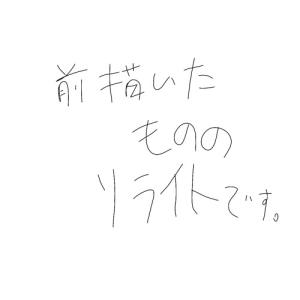 前描いた
ものの
リライトです。